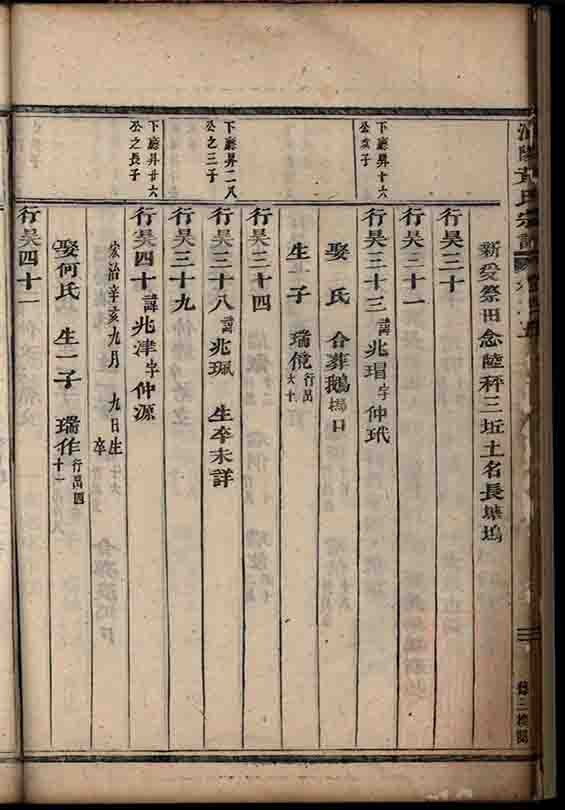 黃氏宗譜
新受祭田念陸秤三坵土名長塘塢
行昊三十
行昊三十一
下廳昇十六
公次子
行昊三十三 諱兆瑁字仲玳
娶 氏 合葬鵝塢口
生一子 瑞俒行昌六十
行昊三十四
下廳昇二八
公之三子
行昊三十八 諱兆珮 生卒未詳
行昊三十九
下廳昇廿六
公之長子
行昊四十 諱兆津字仲源
宋治辛亥九月 九日生 卒
娶何氏 生一子 瑞作行昌四十一
行昊四十一